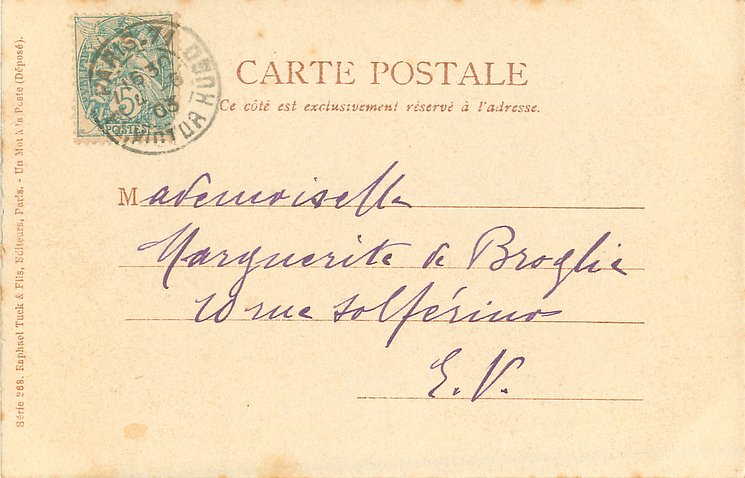 CARTE POSTALE
Ce côté est exclusivement réservé à l'adresse.
Mademoiselle
Marguerite de Broglie
10 rue Solférino
E. V.
5
POSTES
PARIS
16 30
03
Série 268. Raphael Tuck & Fils, Editeurs, Paris. - Un Mot à la Poste (Déposé).